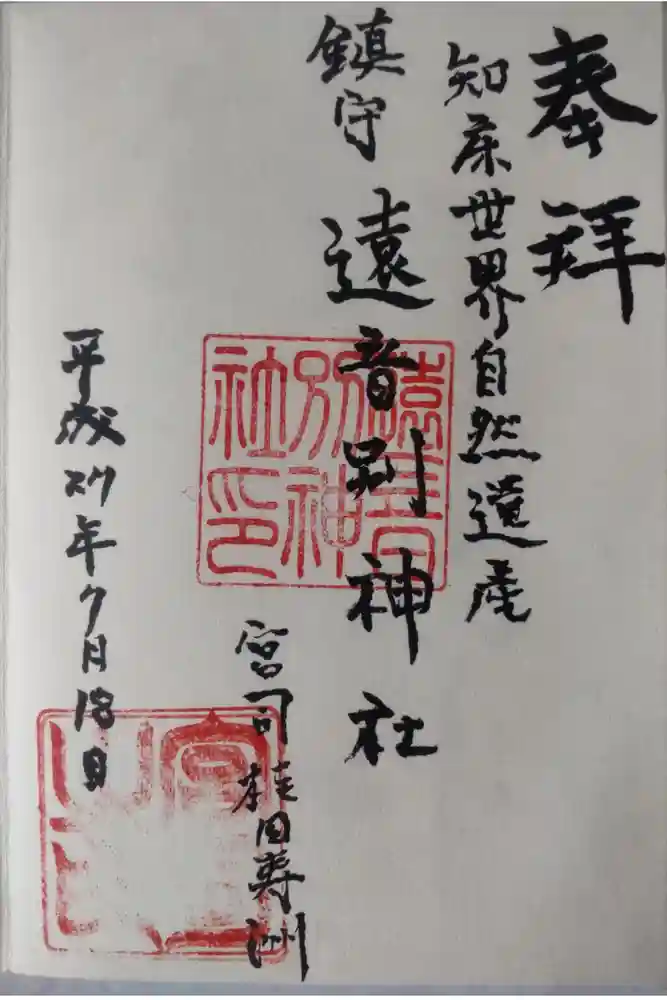 奉拝
知床世界自然遺産
鎮守
遠音別神社
遠音別神社印
宮司 桂田寿洲
平成27年7月18日